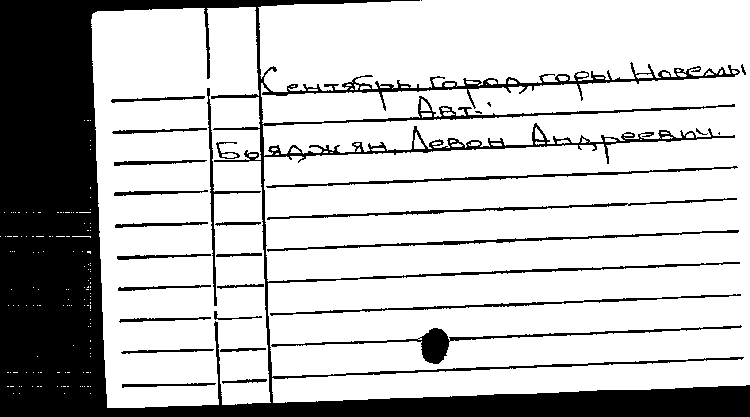 Сентябрь, город, горы. Новеллы
Авт.:
Бояджян, Левон Андреевич.